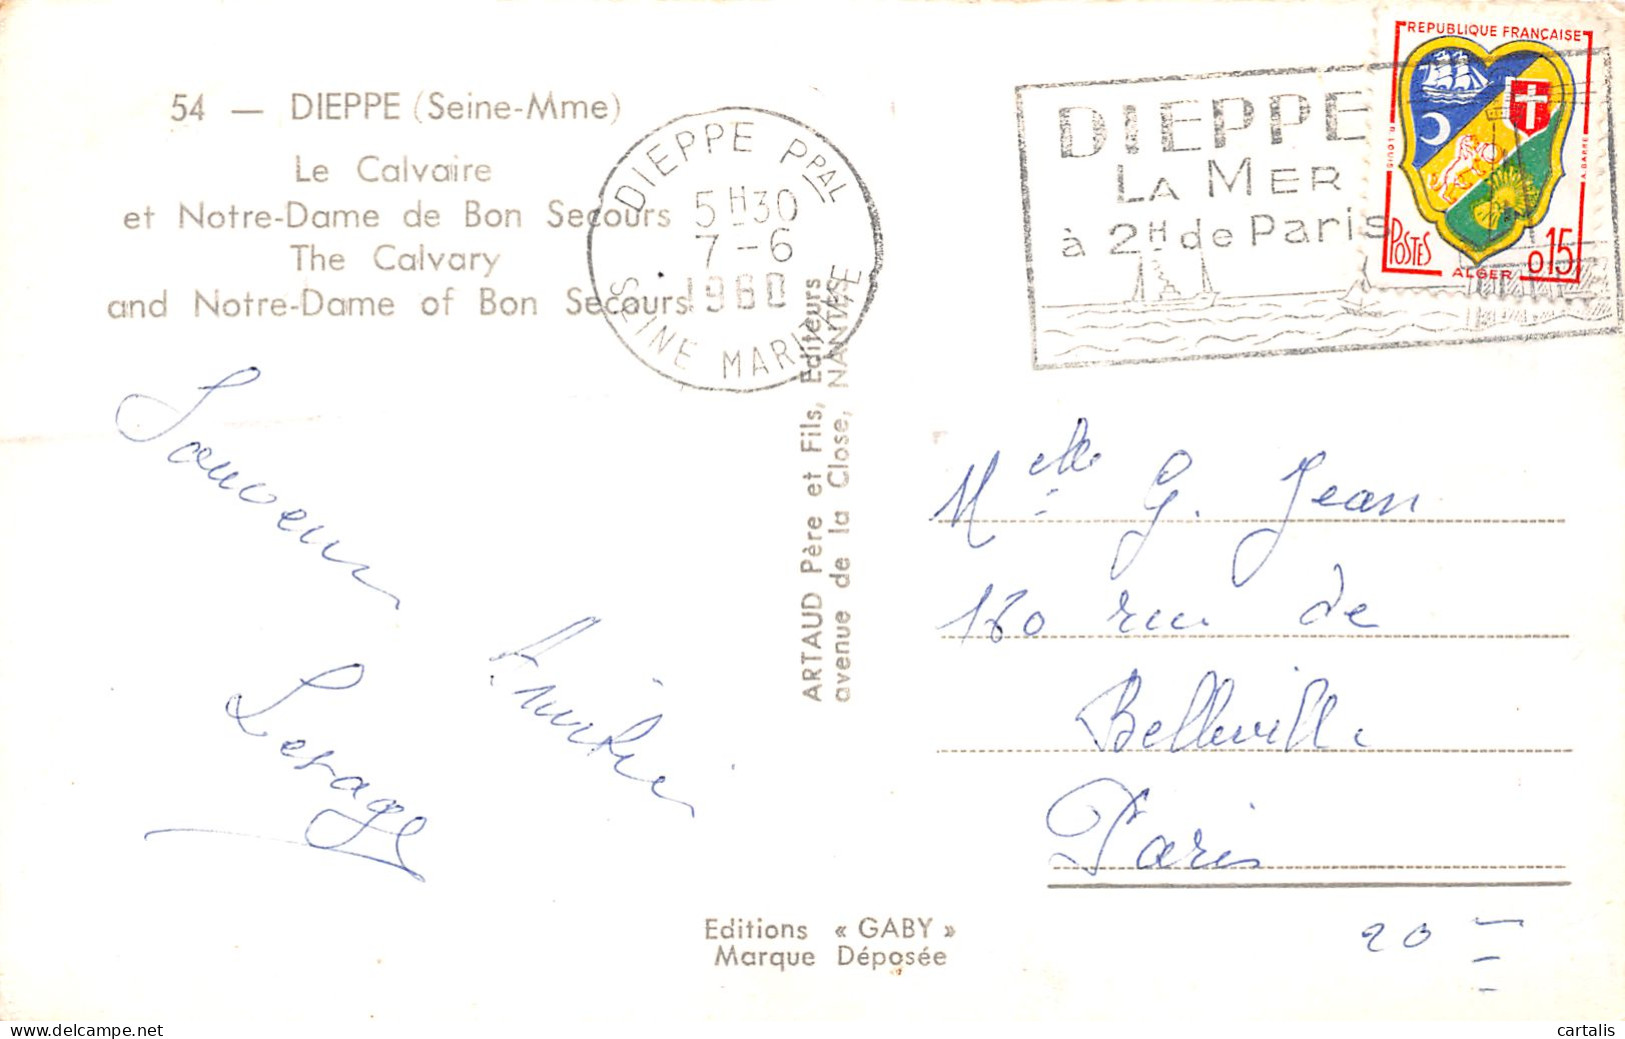 54 — DIEPPE (Seine-Mme)
Le Calvaire
et Notre-Dame de Bon Secours
The Calvary
and Notre-Dame of Bon Secours
DIEPPE PPAL
5H30
7-6
1960
SEINE MARITIME
DIEPPE
LA MER
à 2H de Paris
REPUBLIQUE FRANÇAISE
POSTES
ALGER
0,15
ARTAUD Père et Fils, Editeurs
avenue de la Close, NANTES
Souvenir
Lesage
Melle G. Jean
180 rue de
Belleville
Paris
20e
Editions « GABY »
Marque Déposée
cartalis